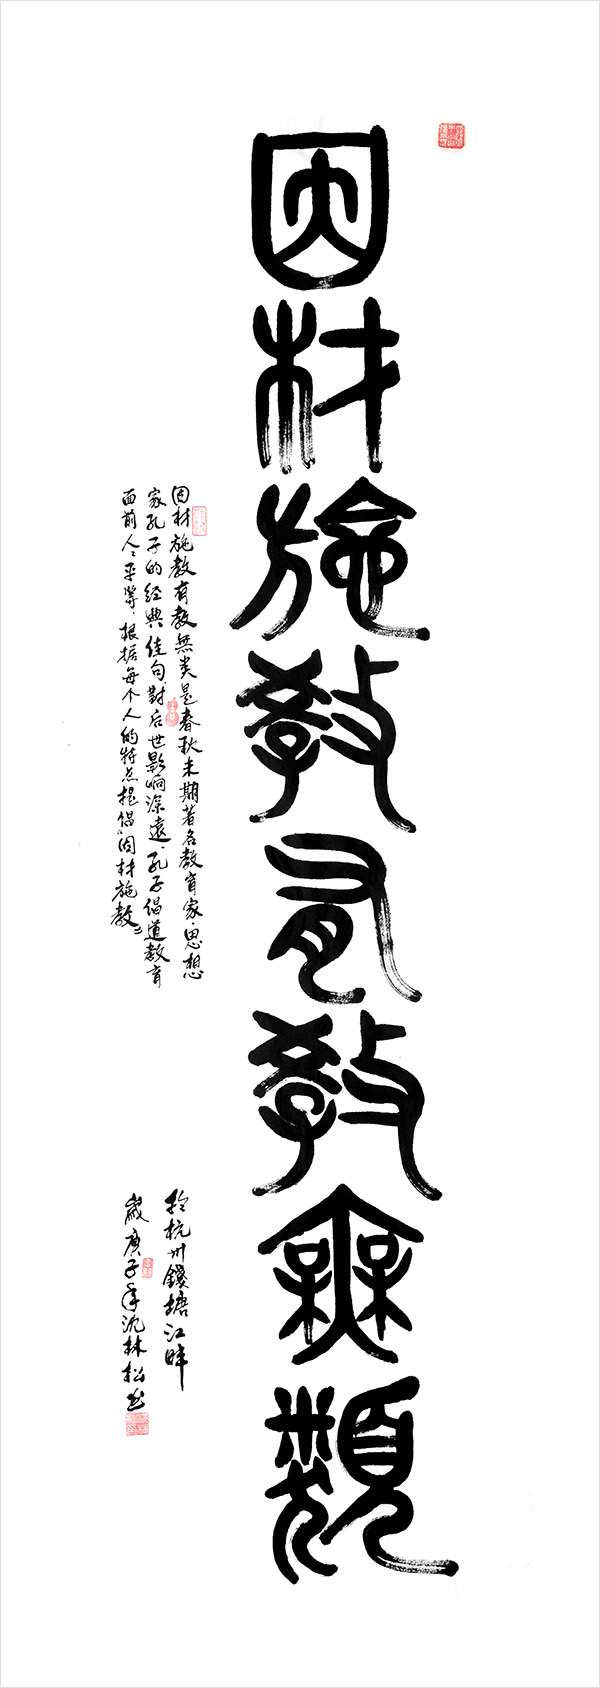 因材施教有教無類
因材施教有教無类是春秋末期著名教育家、思想
家孔子的经典佳句、對后世影响深遠、孔子倡道教育
面前人々平等、根据每个人的特点提倡“因材施教”
於杭州錢塘江畔
歲庚子年沈林松书